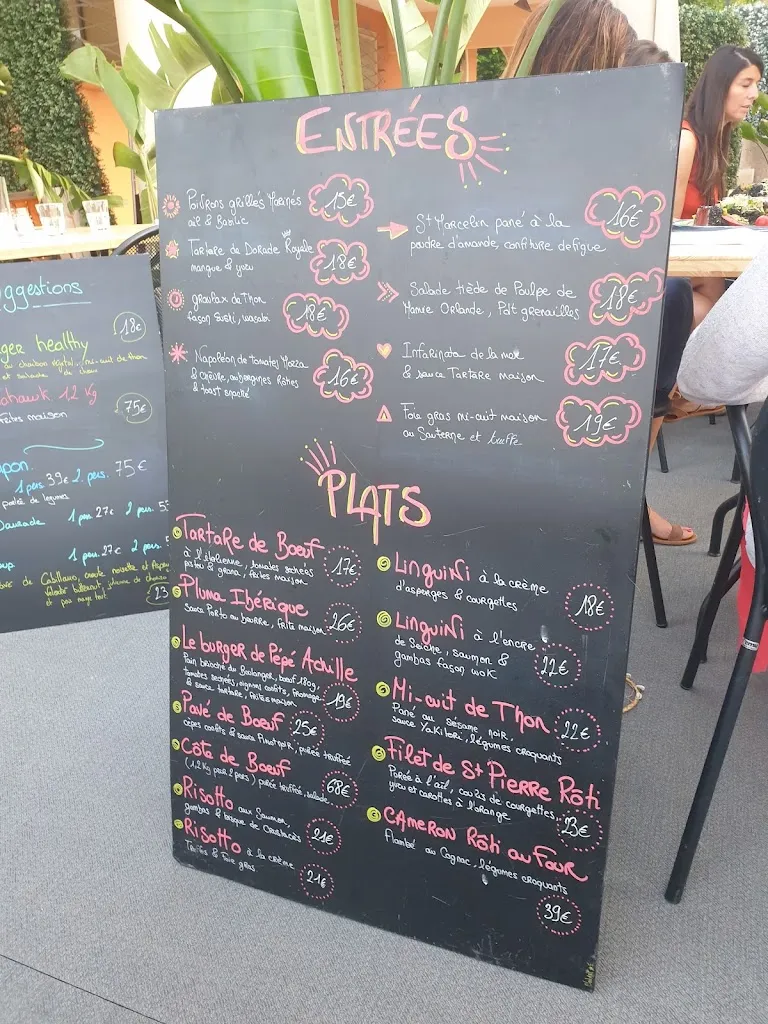 ENTRÉES
Poivrons grillés Marinés
ail & Basilic
15€
Tartare de Dorade Royale
mangue & yuzu
18€
gravlax de Thon
façon Sushi, wasabi
18€
Napoléon de tomates Mozza
& chèvre, aubergines Rôties
& toast snacké
16€
St Marcelin pané à la
poudre d'amande, confiture de figue
16€
Salade tiède de Poulpe de
Mamie Orlande, Pdt grenailles
18€
Infarinata de la mer
& sauce Tartare maison
17€
Foie gras mi-cuit maison
au Sauterne et truffe
19€
PLATS
TARTARE de Bœuf
à l'italienne, tomates séchées
pistou & grana, frites maison
17€
Pluma Ibérique
sauce Porto au beurre, frite maison
26€
Le burger de Pépé Achille
Pain brioché du Boulanger, bœuf 180g,
tomates séchées, oignons confits, fromage
& sauce tartare, frites maison
19€
Pavé de Bœuf
cèpes confits & sauce Pinot noir, purée truffée
25€
Côte de Bœuf
(1.2 Kg pour 2 pers) purée truffée, salade
68€
Risotto aux Saumon
gambas & bisque de Crustacés
21€
Risotto à la crème
Truffes & Foie gras
21€
LinguiNi à la crème
d'asperges & courgettes
18€
LinguiNi à l'encre
de Seiche, saumon &
gambas façon wok
22€
Mi-cuit de Thon
Pané au sésame noir,
sauce Yakitori, légumes croquants
22€
Filet de St Pierre Rôti
Purée à l'ail, coulis de courgettes,
yuzu et carottes à l'orange
23€
CAMERON Rôti au Four
Flambé au Cognac, légumes croquants
39€
ggestions
ger healthy
18€
ahawk 1.2 Kg
frites maison
75€
apon
1 pers 39€ 2 pers. 75€
poêlée de légumes
Daurade 1 pers 27€ 2 pers
oup 1 pers 27€ 2 pers.
de Cabillaud, croute noisette et
23